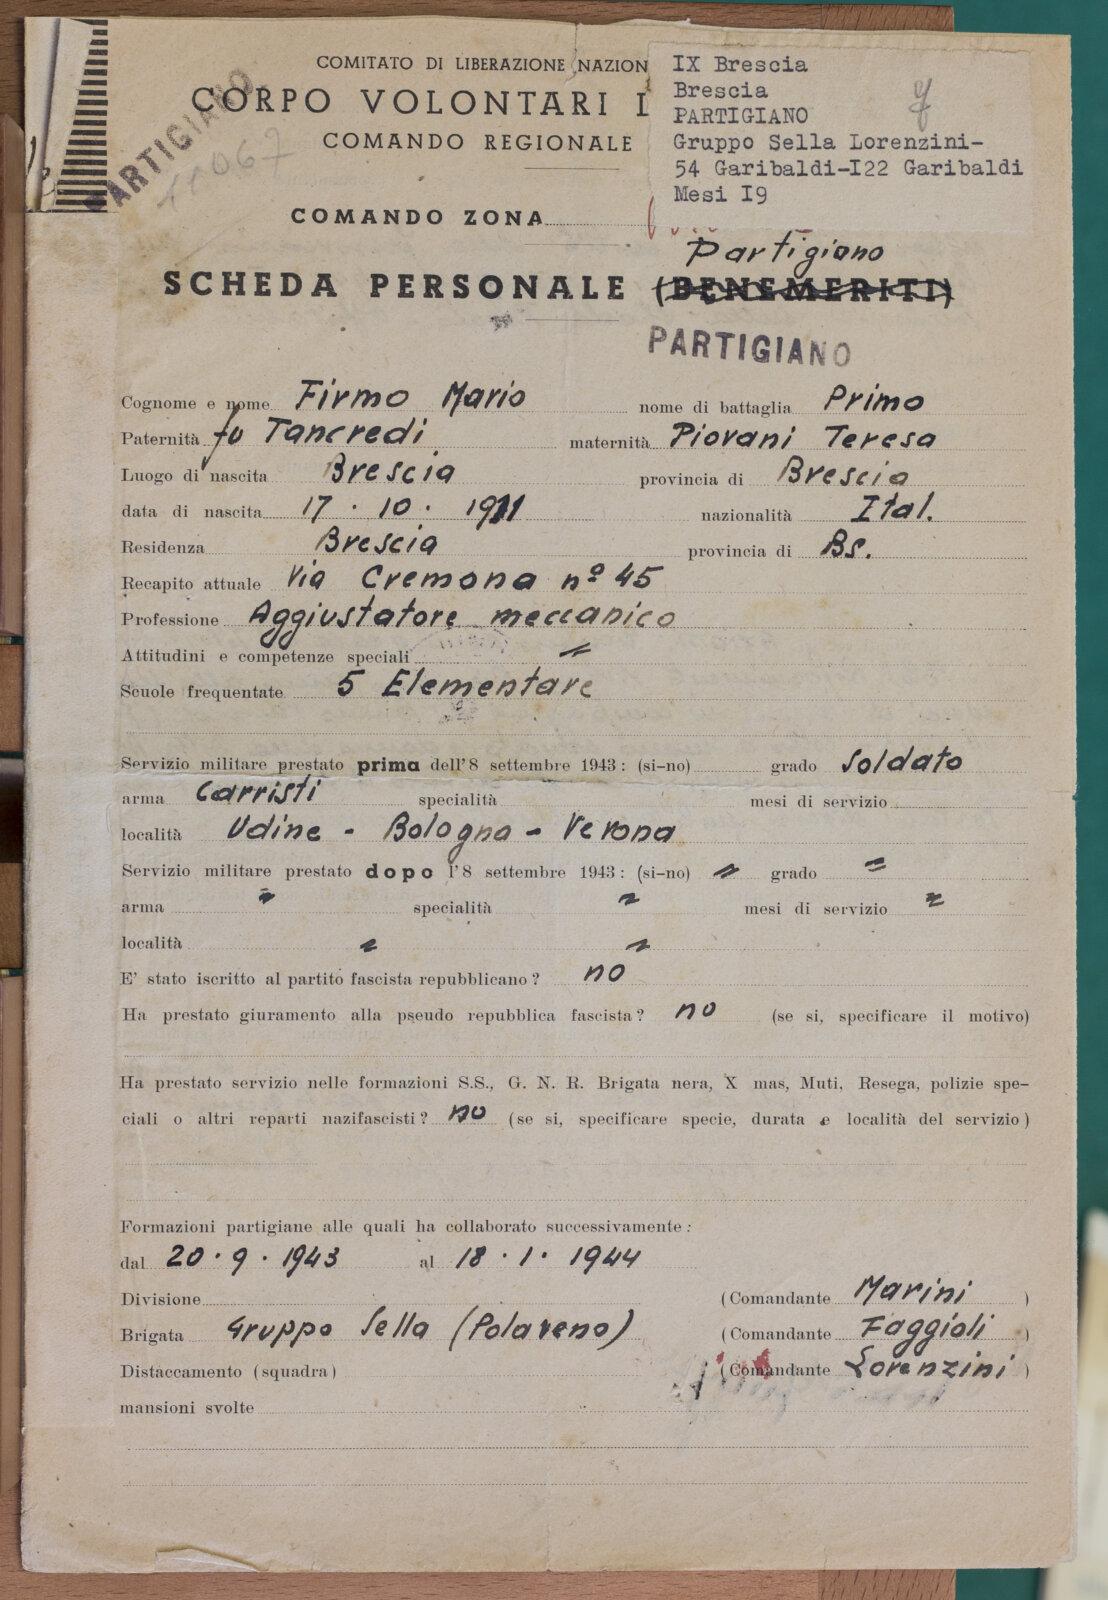 COMITATO DI LIBERAZIONE NAZION
CORPO VOLONTARI
COMANDO REGIONALE
IX Brescia
Brescia
PARTIGIANO
Gruppo Sella Lorenzini-
54 Garibaldi-I22 Garibaldi
Mesi I9
PARTIGIANO
11067
COMANDO ZONA
Partigiano
SCHEDA PERSONALE (BENEMERITI)
PARTIGIANO
Cognome e nome Firmo Mario nome di battaglia Primo
Paternità fu Tancredi maternità Piovani Teresa
Luogo di nascita Brescia provincia di Brescia
data di nascita 17 . 10 . 1911 nazionalità Ital.
Residenza Brescia provincia di Bs.
Recapito attuale Via Cremona nº 45
Professione Aggiustatore meccanico
Attitudini e competenze speciali "
Scuole frequentate 5 Elementare
Servizio militare prestato prima dell'8 settembre 1943: (si-no) grado Soldato
arma Carristi specialità mesi di servizio
località Udine - Bologna - Verona
Servizio militare prestato dopo l'8 settembre 1943: (si-no) " grado "
arma " specialità " mesi di servizio "
località " "
E' stato iscritto al partito fascista repubblicano? no
Ha prestato giuramento alla pseudo repubblica fascista? no (se si, specificare il motivo)
Ha prestato servizio nelle formazioni S.S., G. N. R. Brigata nera, X mas, Muti, Resega, polizie spe-
ciali o altri reparti nazifascisti? no (se si, specificare specie, durata e località del servizio)
Formazioni partigiane alle quali ha collaborato successivamente:
dal 20 . 9 . 1943 al 18 . 1 . 1944
Divisione (Comandante Marini )
Brigata Gruppo Sella (Polaveno) (Comandante Faggioli )
Distaccamento (squadra) (Comandante Lorenzini )
mansioni svolte